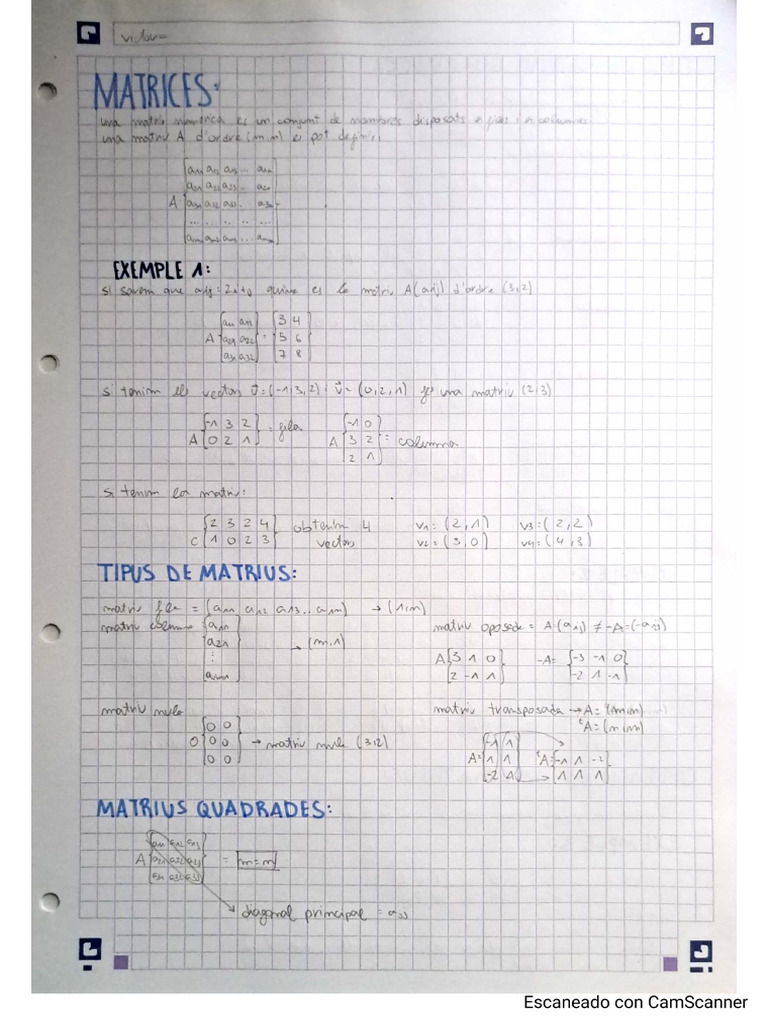 MATRICES:
una matriu numerica es un conjunt de nombres disposats en files i en columnes
una matriu A d'ordre (m,n) es pot definir:
a₁₁ a₁₂ a₁₃ ... a₁ₙ
A
EXEMPLE 1:
si sabem que aij = 2i+j quina es la matriu A(aij) d'ordre (3,2)
a₁₁ a₁₂ 3 4
A a₂₁ a₂₂ = 5 6
a₃₁ a₃₂ 7 8
si tenim els vectors ū=(-1,3,2) i v̄=(0,2,1) fes una matriu (2,3)
A [-1 3 2 / 0 2 1] = fila A [-1 0 / 3 2 / 2 1] = columna
si tenim la matriu:
2 3 2 4 obtenim 4 v1=(2,1) v3=(2,2)
C 1 0 2 3 vectors v2=(3,0) v4=(4,3)
TIPUS DE MATRIUS:
matriu fila = (a₁₁ a₁₂ a₁₃ .. a₁ₙ) → (1,n)
matriu columna a₁₁
a₂₁ → (m,1)
⋮
aₘ₁
matriu oposada = A=(aij) ≠ -A=(-aij)
A 3 1 0 -A= -3 -1 0
2 -1 1 -2 1 -1
matriu nula
0 0
0 0 0 → matriu nula (3,2)
0 0
matriu transposada → A=(m,n)
ᵗA=(n,m)
-1 1
A= 1 1 ᵗA= -1 1 -2
-2 1 1 1 1
MATRIUS QUADRADES:
a₁₁ a₁₂ a₁₃
A a₂₁ a₂₂ a₂₃ = m=n
a₃₁ a₃₂ a₃₃
diagonal principal = ajj
Escaneado con CamScanner